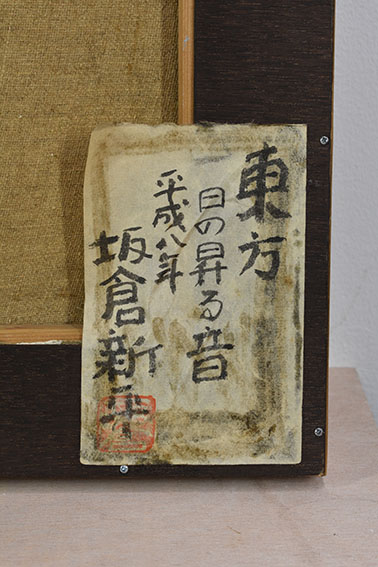 東方
日の昇る音
平成八年
坂倉新平